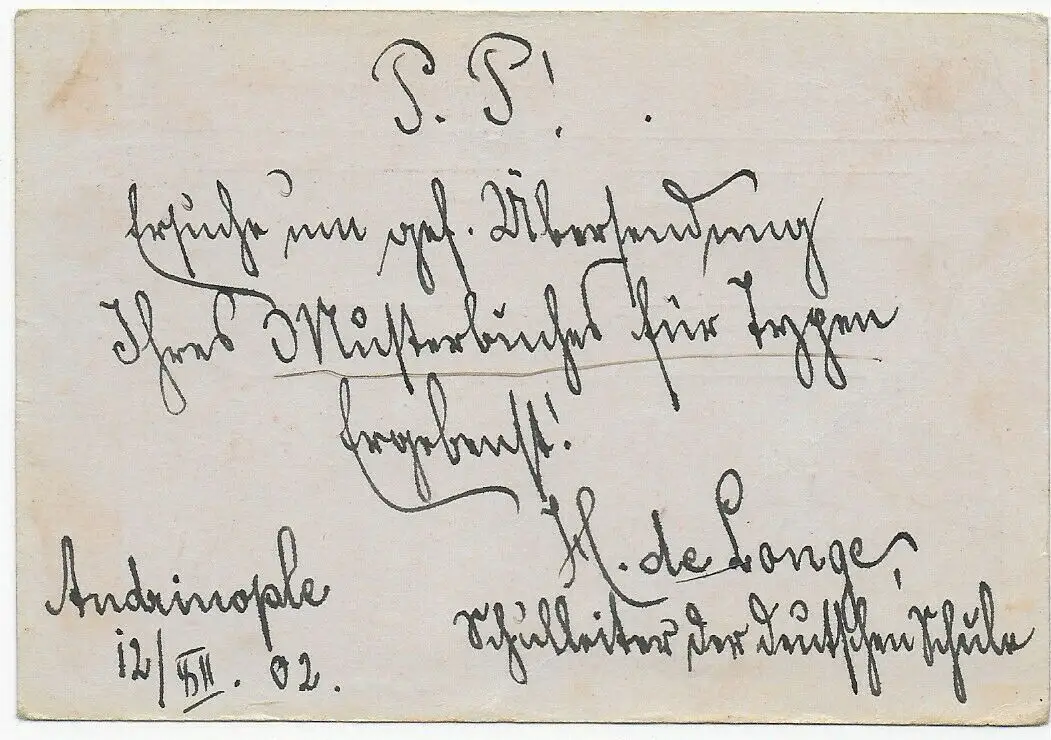 P. P!
Ersuche um gef. Übersendung
Ihres Musterbuches für Typen
Ergebenst!
H. de Longe,
Schulleiter der deutschen Schule
Andrinople
12/XII. 02.